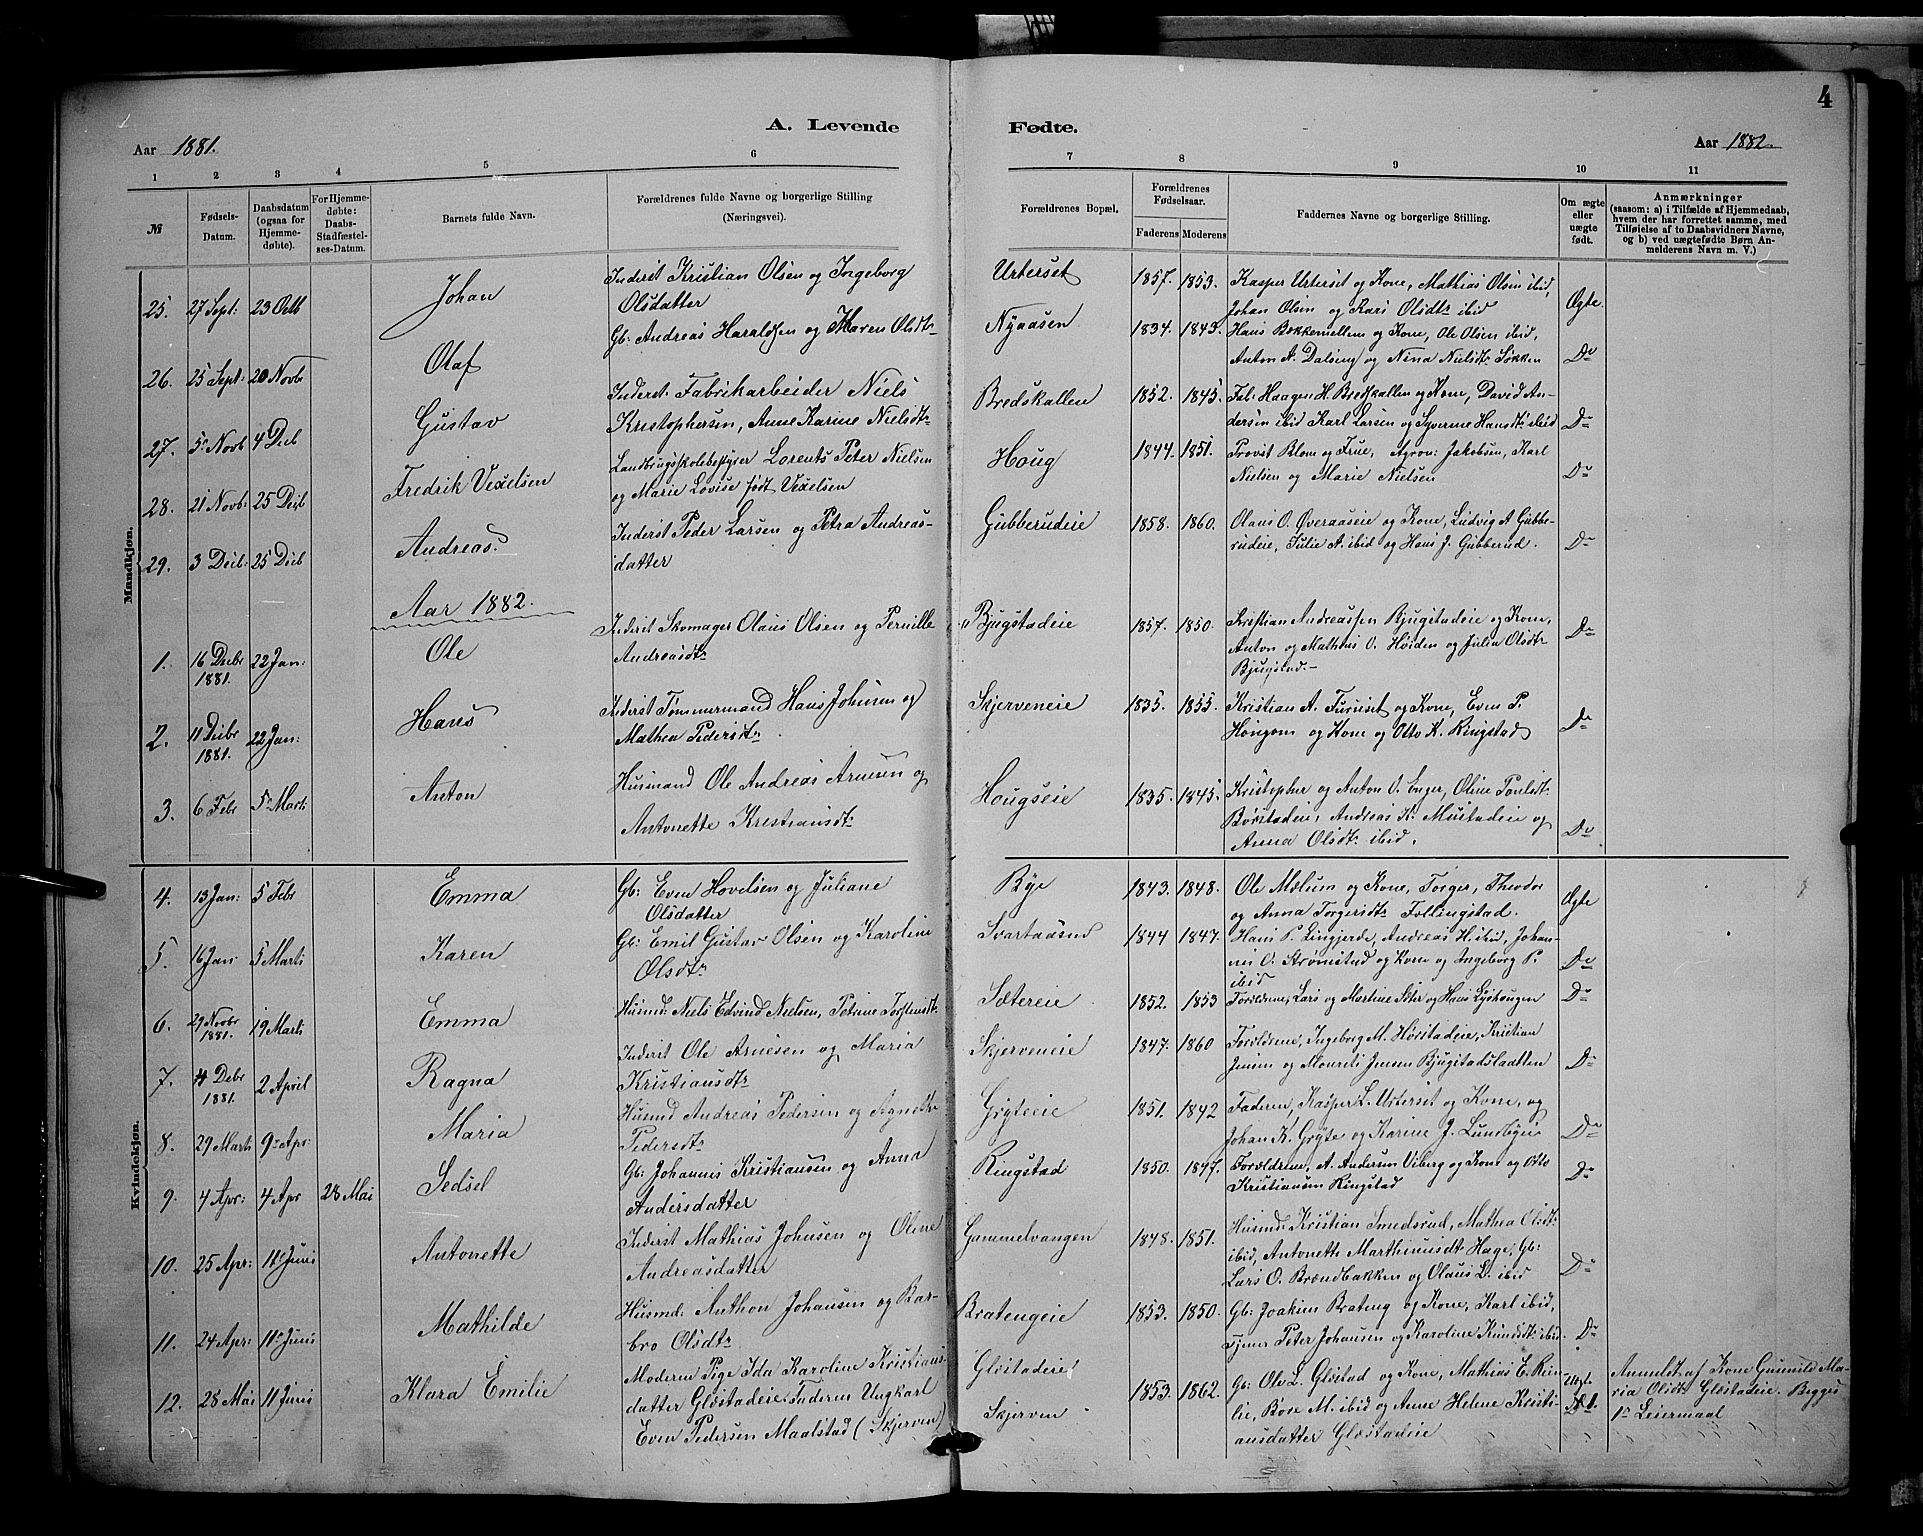 4
A. Levende Fødte.
Aar 1881. Aar 1882.
1 2 3 4 5 6 7 8 9 10 11
№ Fødsels-Datum. Daabsdatum (ogsaa for Hjemme-døbte). For Hjemme-døbte: Daabs-Stadfæstel-ses-Datum. Barnets fulde Navn. Forældrenes fulde Navne og borgerlige Stilling (Næringsvei). Forældrenes Bopæl. Forældrenes Fødselsaar. Faderens Moderens Faddernes Navne og borgerlige Stilling. Om ægte eller uægte født. Anmærkninger (saasom: a) i Tilfælde af Hjemmedaab, hvem der har forrettet samme, med Tilføielse af to Daabsvidners Navne, og b) ved uægtefødte Børn Anmelderens Navn m. V.)
Mandkjøn.
25. 27 Sept: 23 Octb Johan Inderst Kristian Olsen og Ingeborg Urterset 1857. 1853. Kasper Urterset og Kone, Mathias Olsen ibid,
Olsdatter Johan Olsen og Kari Olsdtr ibid Ægte.
26. 25 Sept: 20 Novb Olaf Gb: Andreas Haraldsen og Maren Olsdtr Nyaasen 1834. 1843. Hans Bekkemellem og Kone, Ole Olsen ibid,
Anton A. Dalseng og Nina Nielsdtr Søkken Do
27. 5 Novb 4 Decb Gustav Inderst. Fabrikarbeider Niels Bredskallen 1852. 1845. Fab. Haagen H. Bredskallen og Kone, David An-
Kristophersen, Anne Karine Nielsdtr dersen ibid Karl Larsen og Syverine Hansdtr ibid Do
28. 21 Novb: 25 Decb Fredrik Vexelsen Landbrugsskolebestyrer Lorents Peter Nielsen Houg 1844. 1851. Provst Blom og Frue, Agron: Jakobsen, Karl
og Marie Lovise født Vexelsen Nielsen og Marie Nielsen Do
29. 3 Decb: 25 Decb Andreas. Inderst Peder Larsen og Petra Andreas- Gubberudeie 1858. 1860. Olaus O. Øveraaseie og Kone, Ludvig A Gubbe-
datter rudeie, Julie A. ibid og Hans J. Gubberud. Do
Aar 1882.
1. 16 Decbr 1881. 22 Jan: Ole Inderst Skomager Olaus Olsen og Pernille Bjugstadeie 1857. 1850. Kristian Andreassen Bjugstadeie og Kone,
Andreasdtr Anton og Mathias O. Hviden og Julia Olsdtr Do
Bjugstad.
2. 11 Decbr 1881. 22 Jan: Hans Inderst Tømmermand Hans Johnsen og Skjerveneie 1835. 1855. Kristian A. Furuset og Kone, Even P.
Mathea Pedersdtr. og Kone og Otto K. Ringstad Do
3. 6 Febr 5 Mart: Anton Husmand Ole Andreas Arnesen og Hougseie 1835. 1845. Kristopher og Anton O. Enger, Oline Paulsdtr
Antonette Kristiansdtr Børstadeie, Andreas K. Mustadeie og
Anna Olsdtr ibid. Do
Kvindekjøn.
4. 13 Jan: 5 Febr Emma Gb: Even Hovelsen og Juliane Rye 1843. 1848. Ole Mælum og Kone, Torger, Theodor
Olsdatter og Anna Torgersdtr Føllingstad. Ægte
5. 16 Jan 5 Marts Karen Gb: Emil Gustav Olsen og Karoline Svartaasrud 1844 1847. Hans P. Lingjerde, Andreas H. ibid, Johan-
Olsdtr nes O. Strømstad og Kone og Ingeborg P.
ibid Do
6. 29 Novbr 1881. 19 Marts Emma Husmd. Niels Edvind Nielsen, Petrine Torstensdtr Sætereie 1852. 1853 Forældrene, Lars og Martine Seter og Hans Lyshougen Do
7. 4 Debr 1881. 2 April Ragna Inderst Ole Arnesen og Maria Skjerveneie 1847. 1860 Forældrene, Ingeborg M. Hørstadeie, Kristian
Kristiansdtr Jensen og Mourits Jensen Bjugstadslaatten Do
8. 29 Marts 9 Apr: Maria Husmd Andreas Pedersen og Agnethe Gryteeie 1851. 1842 Faderen, Kasper L. Urterset og Kone, og
Pedersdtr Johan K. Gryte og Karine J. Lundbyeie Do
9. 4 Apr: 4 Apr 28 Mai Sedsel Gb: Johannes Kristiansen og Anna Ringstad 1850. 1847. Forældrene, A. Andersen Viberg og Kone og Otto
Andersdatter Kristiansen Ringstad Do
10. 25 Apr: 11 Juni Antonette Inderst Mathias Johnsen og Oline Gammelvangen 1848. 1851. Husmd. Kristian Smedsrud, Mathea Olsdtr
Andreasdatter ibid, Antonette Marthinusdtr Hage, Gb:
Lars O. Brændbakken og Olaus L. ibid Do
11. 24 Apr: 11 Juni Mathilde Husmd. Anthon Johansen og Bar- Bratengeie 1853. 1850. Gb: Joakim Brateng og Kone, Karl ibid,
bro Olsdtr Tjener Peter Johansen og Karoline Knudsdtr ibid. Do
12. 28 Mai 11 Juni Klara Emilie Moderen Pige Ida Karoline Kristians- Gløstadeie 1853. 1862. Gb: Ole L. Gløstad og Kone, Mathias E. Rin- Uægte Anmeldt af Kone Gunnild Ma-
datter Gløstadeie. Faderen Ungkarl Skjerven lie, Bore M. ibid og Anne Helene Kristi- 1. ria Olsdtr Gløstadeie. Begges
Even Pedersen Maalstad (Skjerven) ansdatter Gløstadeie 1ste Leiermaal